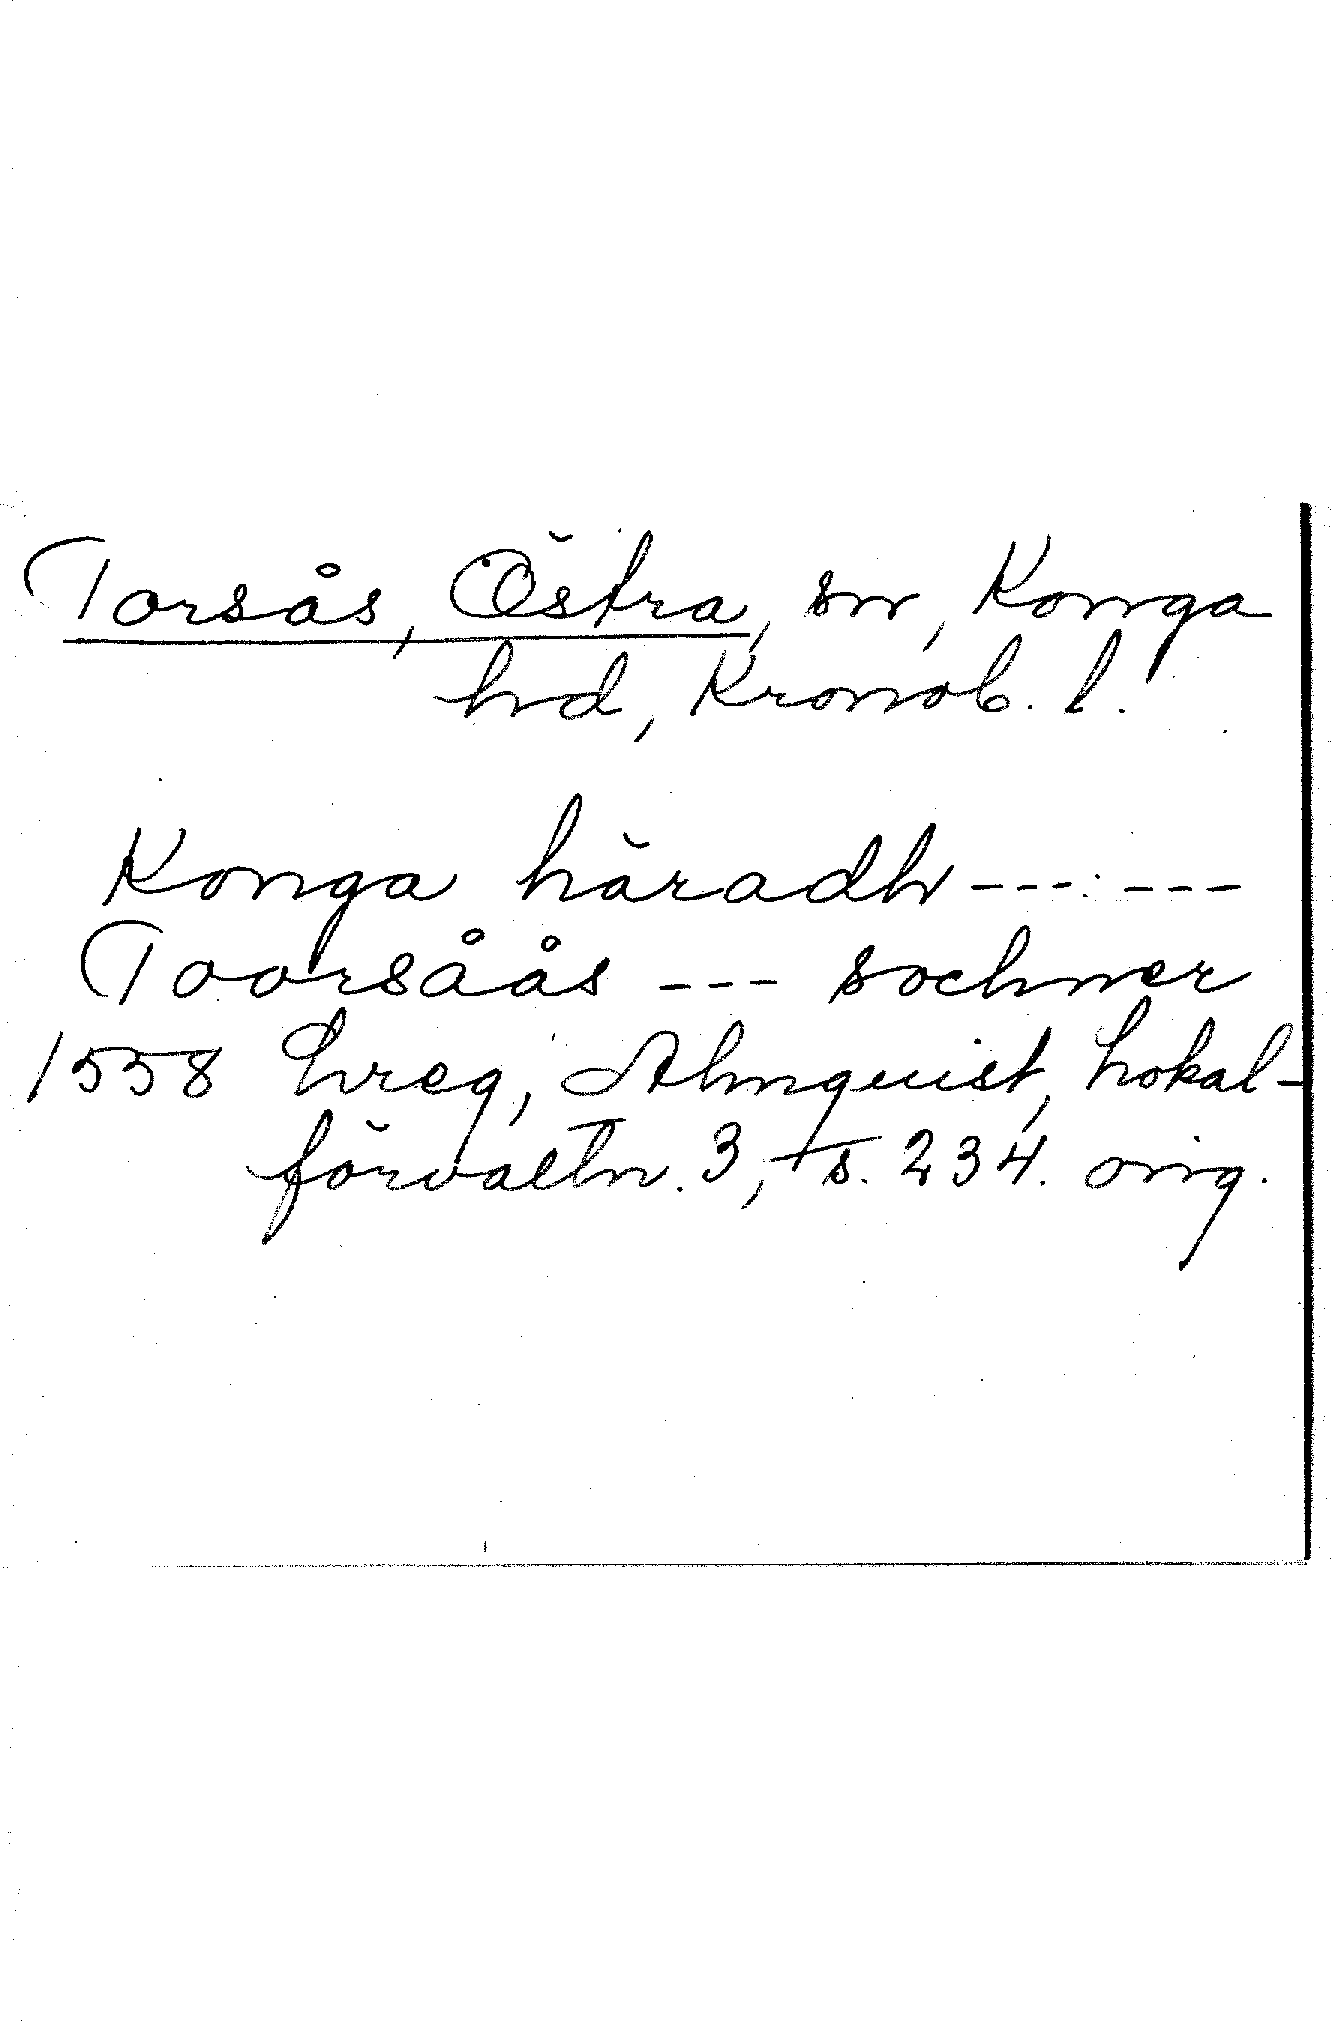 Torsås, Östra, sn, Konga
hd, Kronob. l.
Konga häradh --- ---
Toorsåås --- sochner
1558 Lreg, Almquist, Lokal-
förvaltn. 3, s. 234. orig.